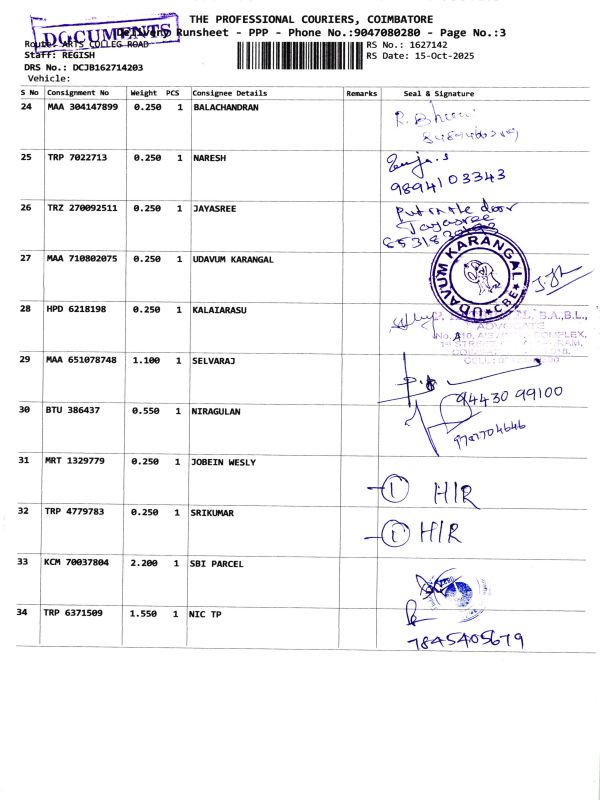 THE PROFESSIONAL COURIERS, COIMBATORE
DOCUMENTS
Delivery Runsheet - PPP - Phone No.:9047080280 - Page No.:3
Route: ARTS COLLEG ROAD
RS No.: 1627142
Staff: REGISH
RS Date: 15-Oct-2025
DRS No.: DCJB162714203
Vehicle:
S No Consignment No Weight PCS Consignee Details Remarks Seal & Signature
24 MAA 304147899 0.250 1 BALACHANDRAN
25 TRP 7022713 0.250 1 NARESH
9894103343
26 TRZ 270092511 0.250 1 JAYASREE
Put in the door
Jayasree
27 MAA 710802075 0.250 1 UDAVUM KARANGAL
UDAVUM KARANGAL CBE
28 HPD 6218198 0.250 1 KALAIARASU
B.A.,B.L.,
ADVOCATE
COMPLEX,
29 MAA 651078748 1.100 1 SELVARAJ
94430 99100
30 BTU 386437 0.550 1 NIRAGULAN
9787704646
31 MRT 1329779 0.250 1 JOBEIN WESLY
1 H/R
32 TRP 4779783 0.250 1 SRIKUMAR
1 H/R
33 KCM 70037804 2.200 1 SBI PARCEL
34 TRP 6371509 1.550 1 NIC TP
7845405679